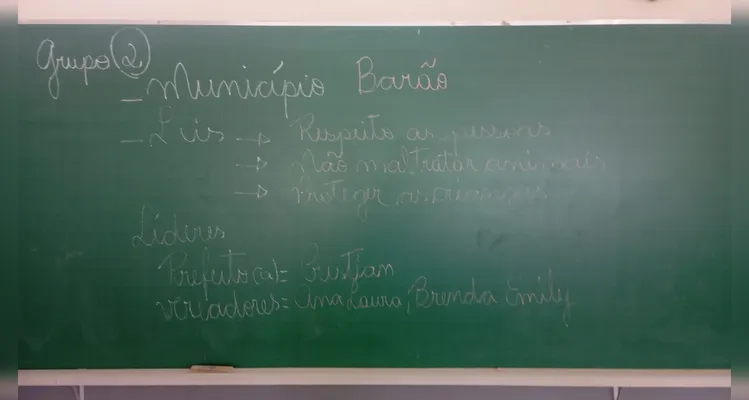 Grupo 2
- Município Barão
- Leis → Respeito as pessoas
→ Não maltratar animais
→ Proteger as crianças
Líderes
Prefeito(a) = Cristjan
Vereadores = Ana Laura, Brenda Emily